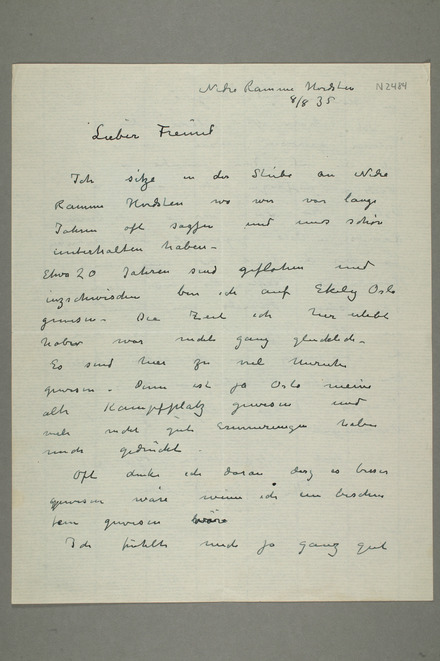 Nedre Ramme Hvidsten N2484
8/8 35
Lieber Freund
Ich sitze in der Stube an Nedre
Ramme Hvidsten wo wir vor lange
Jahren oft sassen und uns schön
unterhalten haben –
Etwa 20 Jahren sind geflohen und
inzschwischen bin ich auf Ekely Oslo
gewesen – Die Zeit ich hier erlebt
habe war nicht ganz glücklich –
Es sind hier zu viel Unruhe
gewesen – Dann ist ja Oslo meine
alte Kampfplatz gewesen und
viele nicht gute Erinnerungen haben
mich gedrückt –
Oft denke ich daran das es besser
gewesen wäre wenn ich ein bischen
fern gewesen wäre
Ich fühlte mich ja ganz gut